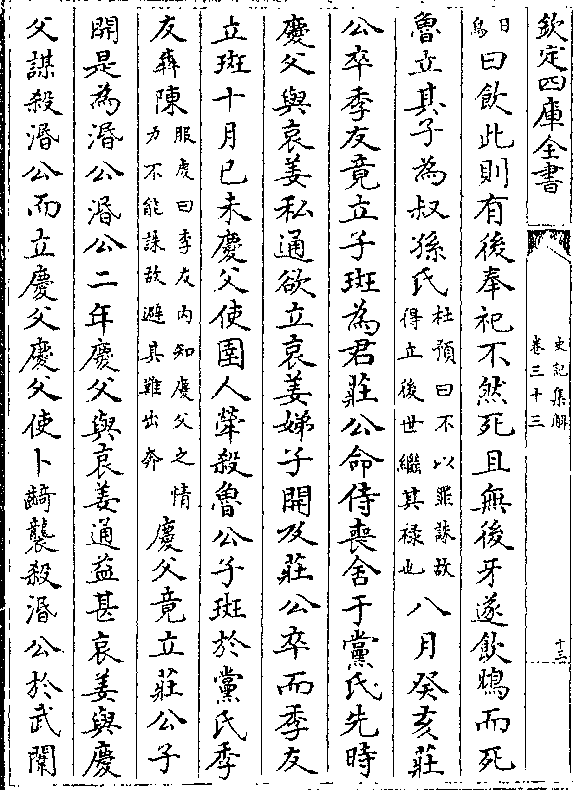 欽定四庫全書
史記集解
卷三十三
十三
日鳥曰飲此則有後奉祀不然死且無後牙遂飲鴆而死
魯立其子為叔孫氏杜預曰不以罪誅故得立後世繼其禄也八月癸亥莊
公卒季友竟立子斑為君莊公命侍喪舍于黨氏先時
慶父與哀姜私通欲立哀姜娣子開及莊公卒而季友
立斑十月已未慶父使圉人犖殺魯公子斑於黨氏季
友犇陳服虔曰季友内知慶父之情力不能誅故避其難出奔慶父竟立莊公子
開是為湣公湣公二年慶父與哀姜通益甚哀姜與慶
父謀殺湣公而立慶父慶父使卜齮襲殺湣公於武闈